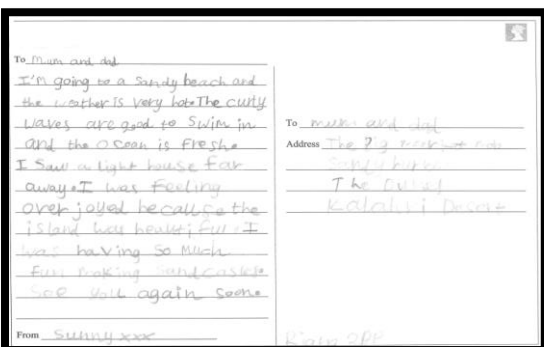 To Mum and dad
I'm going to a Sandy beach and
the weather is very hot. The curly
waves are good to Swim in
and the ocean is fresh.
I Saw a light house far
away. I was feeling
over joyed because the
island was beautiful. I
was having so Much
fun making sandcastles.
See you again soon.
From Sunny xxx
To mum and dad
Address The
Sandy
The
Kalahri Desert